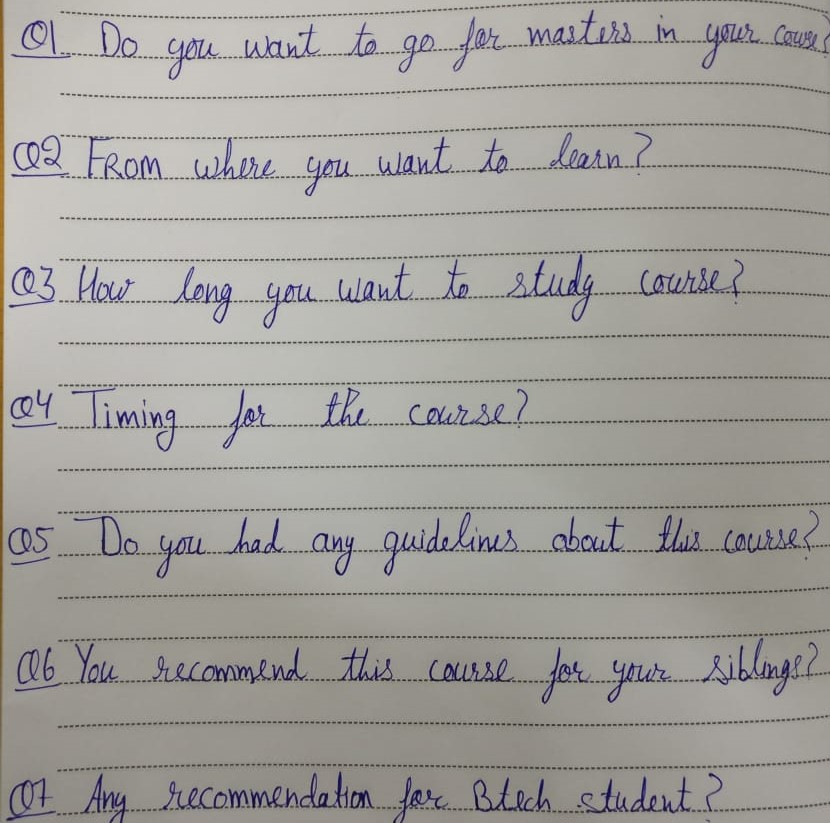 Q1 Do you want to go for masters in your course?
Q2 FROM where you want to learn?
Q3 How long you want to study course?
Q4 Timing for the course?
Q5 Do you had any guidelines about this course?
Q6 You recommend this course for your siblings?
Q7 Any recommendation for Btech student?